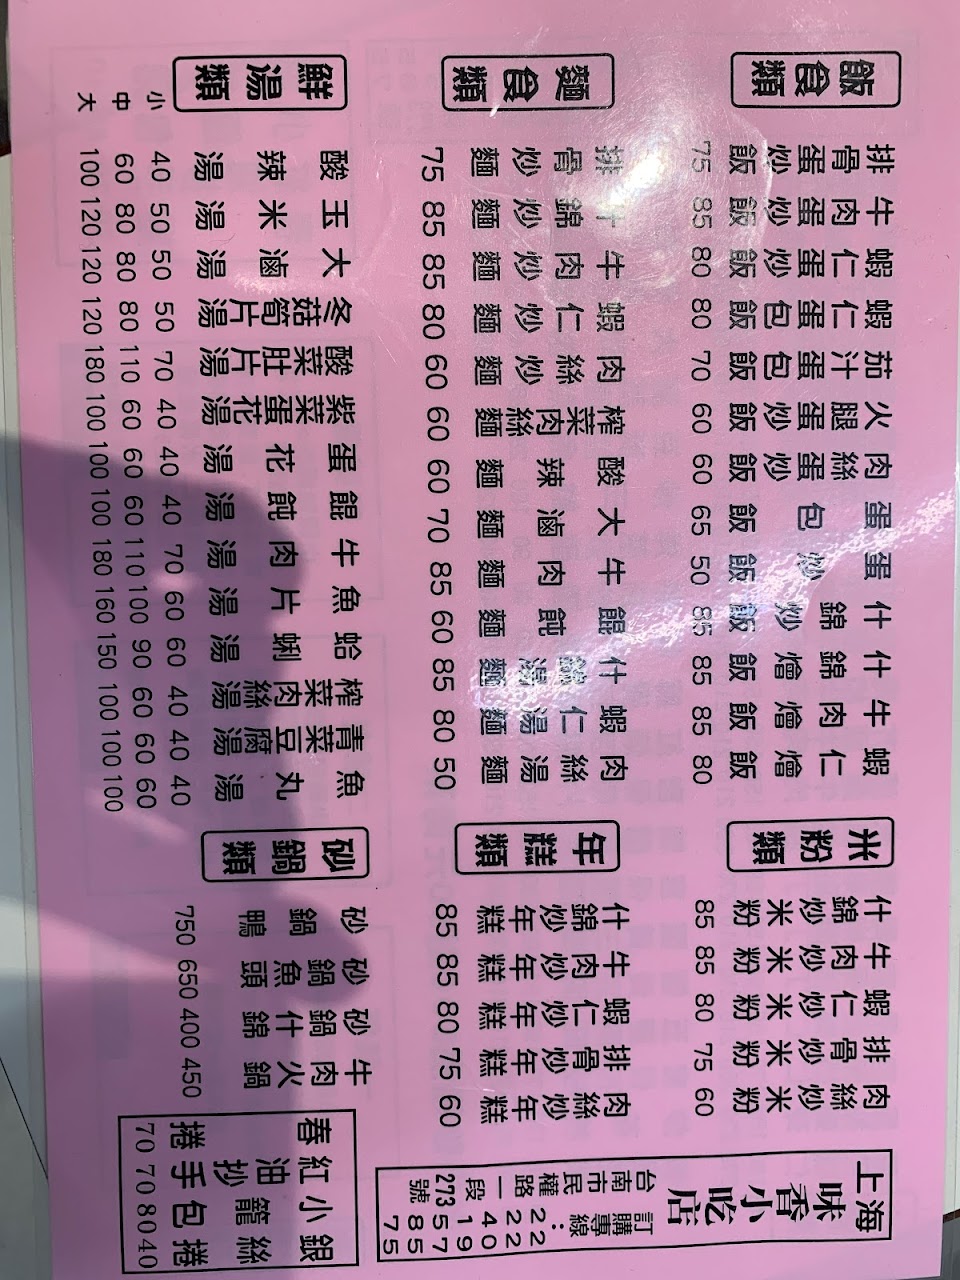 飯食類
排骨蛋炒飯 75
牛肉蛋炒飯 85
蝦仁蛋炒飯 80
蝦仁蛋包飯 80
茄汁蛋包飯 70
火腿蛋炒飯 60
肉絲蛋炒飯 60
蛋包飯 65
蛋炒飯 50
什錦炒飯 85
什錦燴飯 85
牛肉燴飯 85
蝦仁燴飯 80
米粉類
什錦炒米粉 85
牛肉炒米粉 85
蝦仁炒米粉 80
排骨炒米粉 75
肉絲炒米粉 60
麵食類
排骨炒麵 75
什錦炒麵 85
牛肉炒麵 85
蝦仁炒麵 80
肉絲炒麵 60
榨菜肉絲麵 60
酸辣麵 60
大滷麵 70
牛肉麵 85
餛飩麵 60
什錦湯麵 85
蝦仁湯麵 80
肉絲湯麵 50
年糕類
什錦炒年糕 85
牛肉炒年糕 85
蝦仁炒年糕 80
排骨炒年糕 75
肉絲炒年糕 60
鮮湯類
小 中 大
酸辣湯 40 60 100
玉米湯 50 80 120
大滷湯 50 80 120
冬菇筍片湯 50 80 120
酸菜肚片湯 70 110 180
紫菜蛋花湯 40 60 100
蛋花湯 40 60 100
餛飩湯 40 60 100
牛肉湯 70 110 180
魚片湯 60 100 160
蛤蜊湯 60 90 150
榨菜肉絲湯 40 60 100
青菜豆腐湯 40 60 100
魚丸湯 40 60 100
砂鍋類
砂鍋鴨 750
砂鍋魚頭 650
砂鍋什錦 400
牛肉火鍋 450
春捲 70
紅油抄手 70
小籠包 80
銀絲捲 40
上海
味香小吃店
台南市民權路一段273號
訂購專線：2241587
2209755